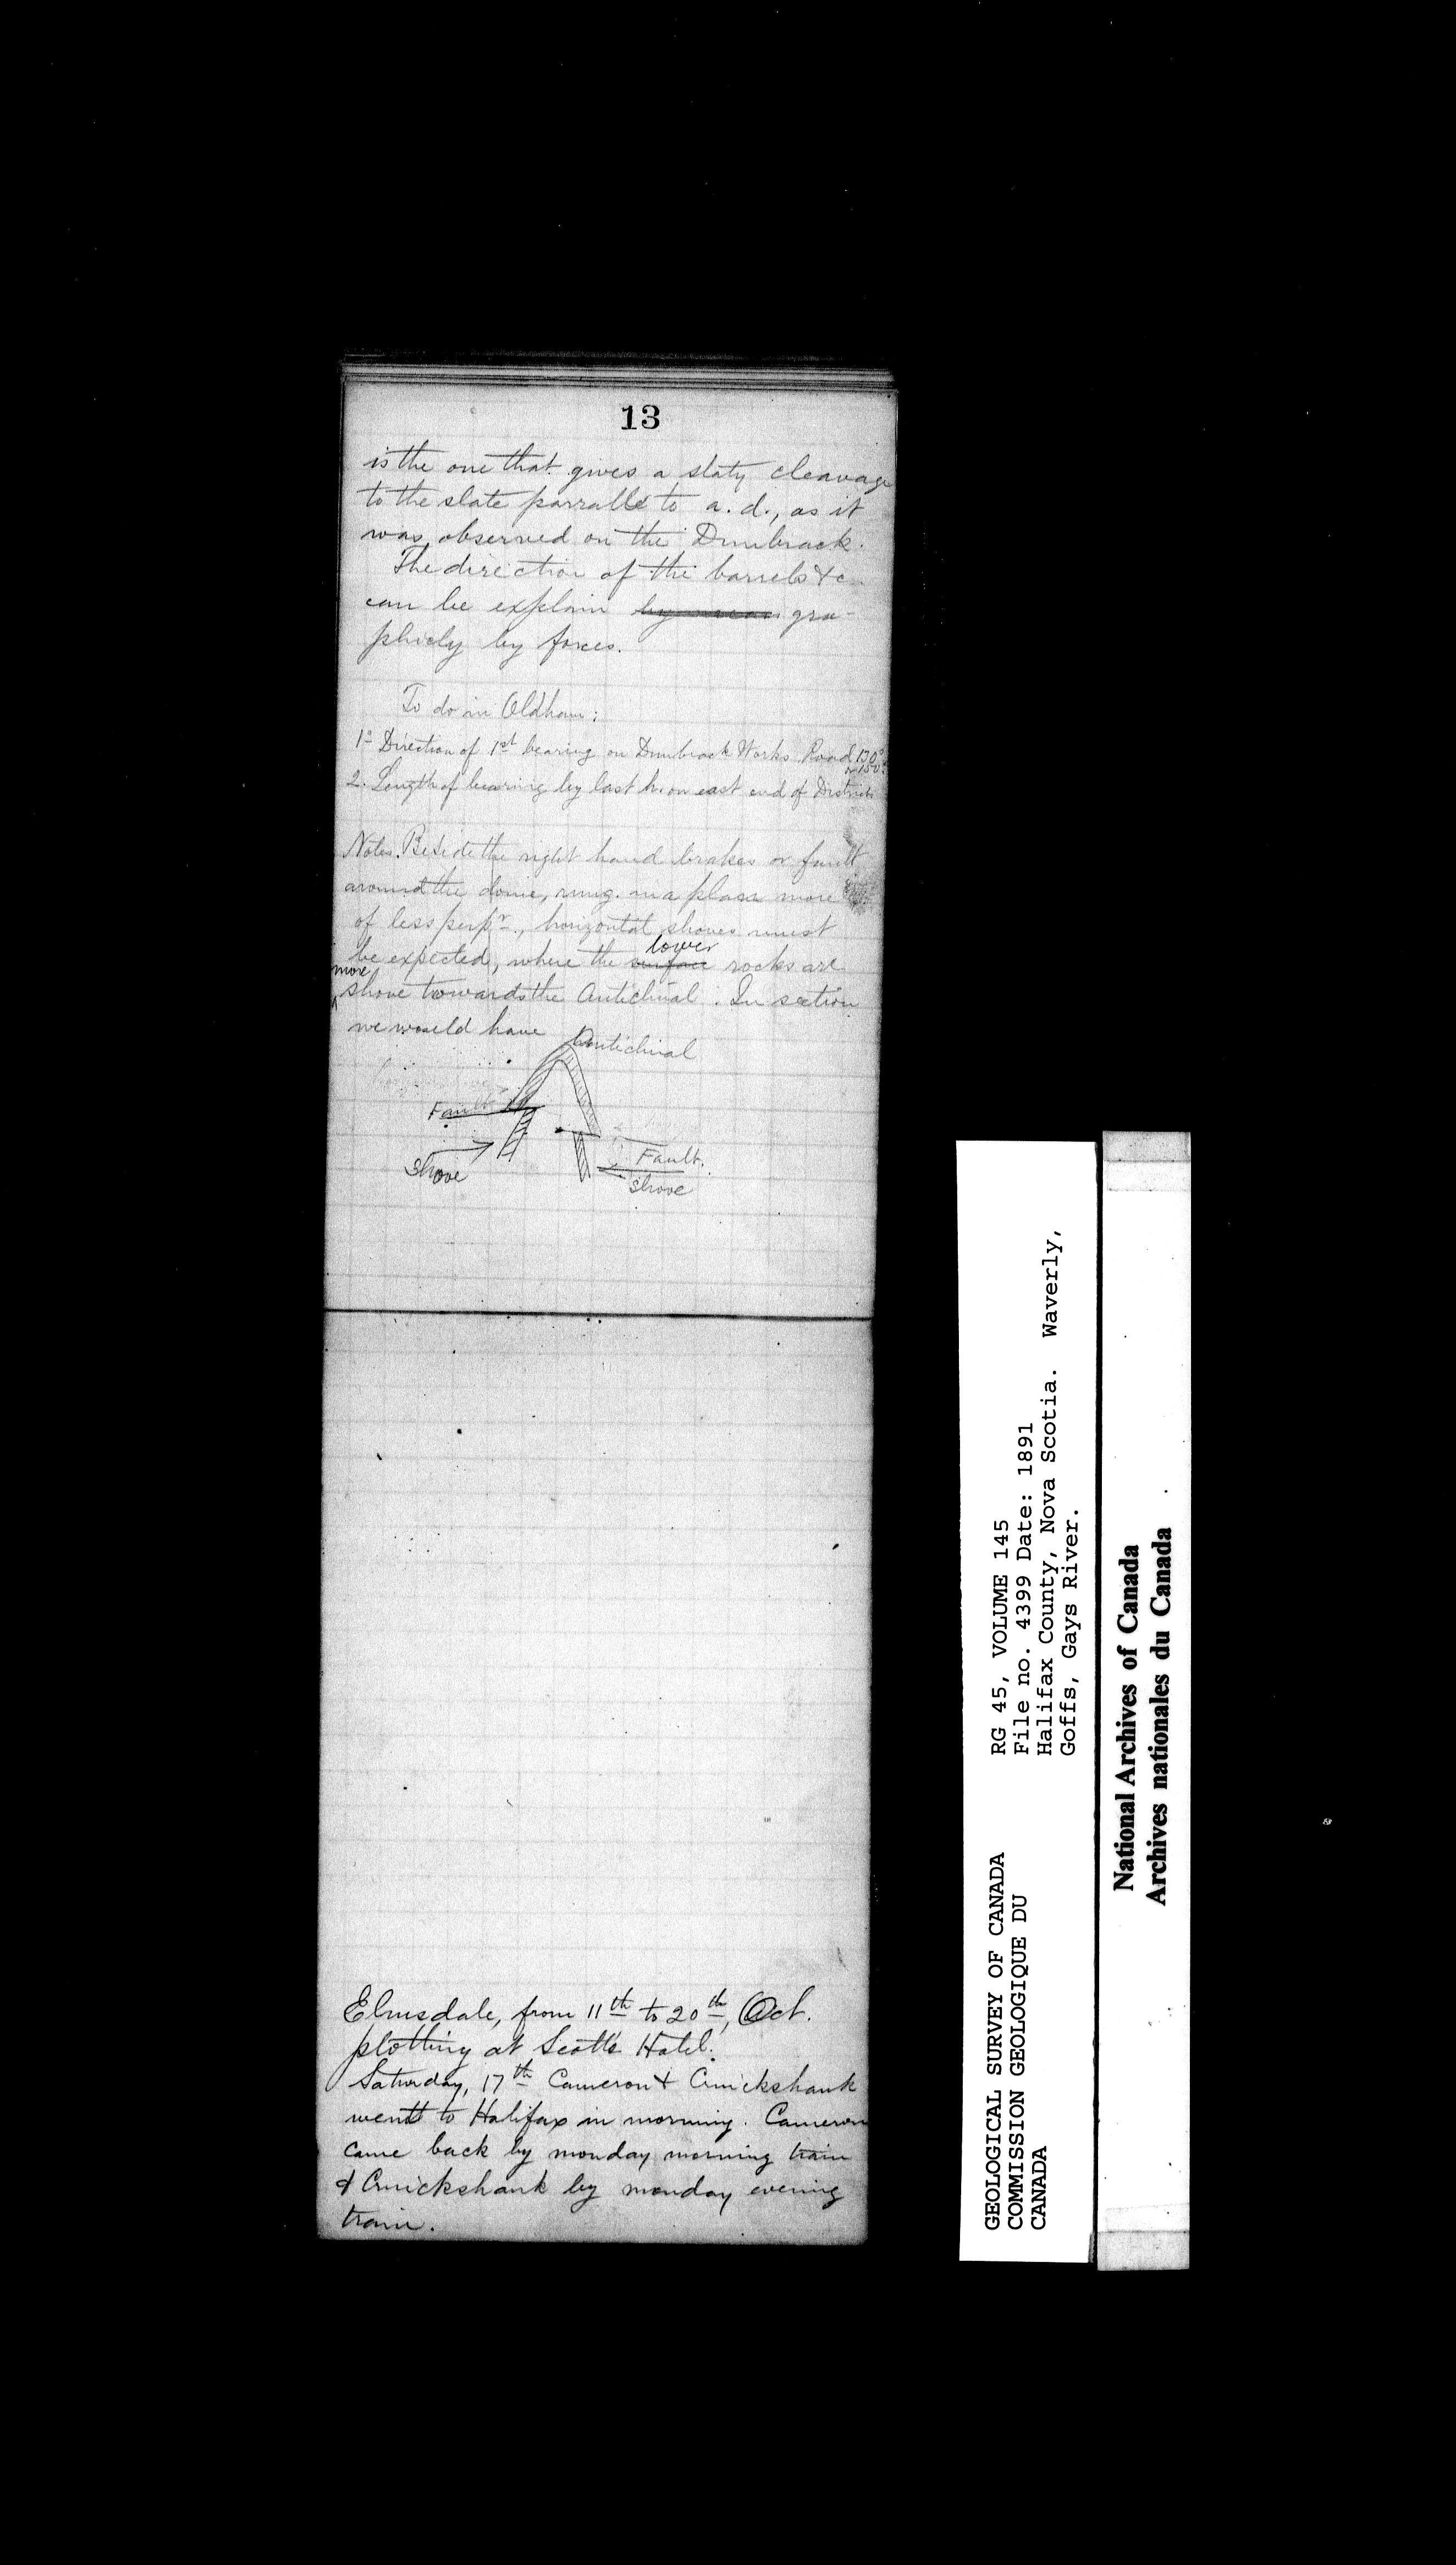 13
is the one that gives a slaty cleavage
to the slate parralle to a. d., as it
was observed on the Dunbrack.
The direction of the barrels &c
can be explain by mean gra-
phicly by forces.
To do in Oldham:
1º Direction of 1st bearing on Dunbrack Works Road 130º
or 150º
2. Length of bearing by last h. on east end of District
Notes. Beside the right hand brakes or fault
around the dome, rung. in a plan more
of less perpr., horizontal shoves must
be expected, where the surface lower rocks are
more shove towards the Anticlinal. In section
we would have
Anticlinal
Fault
Shove
Fault.
Shove
Elmsdale, from 11th to 20th, Oct.
plotting at Scott's Hotel.
Saturday, 17th Cameron & Cruickshank
wentt to Halifax in morning. Cameron
came back by monday morning train
& Cruickshank by monday evening
train.
GEOLOGICAL SURVEY OF CANADA
COMMISSION GEOLOGIQUE DU
CANADA
RG 45, VOLUME 145
File no. 4399 Date: 1891
Halifax County, Nova Scotia. Waverly,
Goffs, Gays River.
National Archives of Canada
Archives nationales du Canada